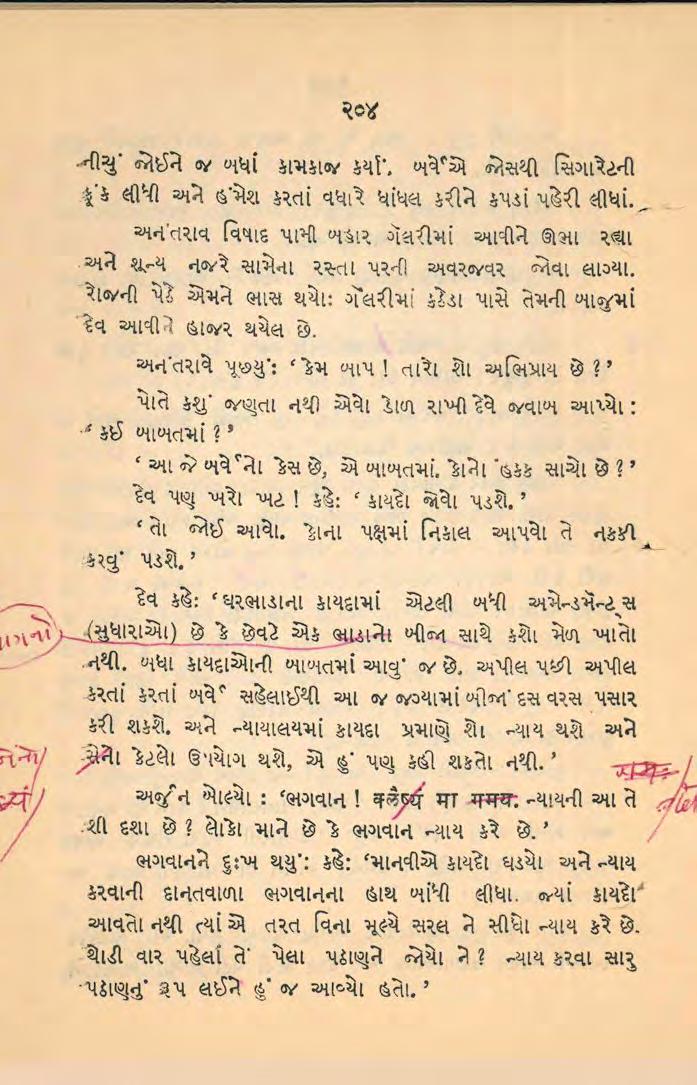 ૨૦૪
નીચું જોઈને જ બધાં કામકાજ કર્યાં. બર્વેએ જોસથી સિગારેટની
ફૂંક લીધી અને હંમેશ કરતાં વધારે ધાંધલ કરીને કપડાં પહેરી લીધાં.
અનંતરાવ વિષાદ પામી બહાર ગૅલરીમાં આવીને ઊભા રહ્યા
અને શૂન્ય નજરે સામેના રસ્તા પરની અવરજવર જોવા લાગ્યા.
રોજની પેઠે એમને ભાસ થયો: ગૅલરીમાં કઠેડા પાસે તેમની બાજુમાં
દેવ આવીને હાજર થયેલ છે.
અનંતરાવે પૂછ્યું: ‘કેમ બાપ! તારો શો અભિપ્રાય છે?’
પોતે કશું જણતા નથી એવો ડોળ રાખી દેવે જવાબ આપ્યો:
‘કઈ બાબતમાં?’
‘આ જે બર્વેનો કેસ છે, એ બાબતમાં. કોનો હક્ક સાચો છે?’
દેવ પણ ખરો ખટ! કહે: ‘કાયદો જોવો પડશે.’
‘તો જોઈ આવો. કોના પક્ષમાં નિકાલ આપવો તે નક્કી
કરવું પડશે.’
દેવ કહે: ‘ઘરભાડાના કાયદામાં એટલી બધી અમેન્ડમૅન્ટ્સ
(સુધારાઓ) છે કે છેવટે એક ભાડાનો બીજા સાથે કશો મેળ ખાતો
નથી. બધા કાયદાઓની બાબતમાં આવું જ છે. અપીલ પછી અપીલ
કરતાં કરતાં બર્વે સહેલાઈથી આ જ જગ્યામાં બીજાં દસ વરસ પસાર
કરી શકશે. અને ન્યાયાલયમાં કાયદા પ્રમાણે શો ન્યાય થશે અને
સેના કેટલો ઉપયોગ થશે, એ હું પણ કહી શકતો નથી.’
અર્જુન બોલ્યો: ‘ભગવાન! क्लैष्यं मा गमय. ન્યાયની આ તે
શી દશા છે? લોકો માને છે કે ભગવાન ન્યાય કરે છે.’
ભગવાનને દુઃખ થયું: કહે: ‘માનવીએ કાયદો ઘડયો અને ન્યાય
કરવાની દાનતવાળા ભગવાનના હાથ બાંધી લીધા. જ્યાં કાયદો
આવતો નથી ત્યાં એ તરત વિના મૂલ્યે સરલ ને સીધો ન્યાય કરે છે.
થોડી વાર પહેલાં તેં પેલા પઠાણને જોયો ને? ન્યાય કરવા સારુ
પઠાણનું રૂપ લઈને હું જ આવ્યો હતો.’